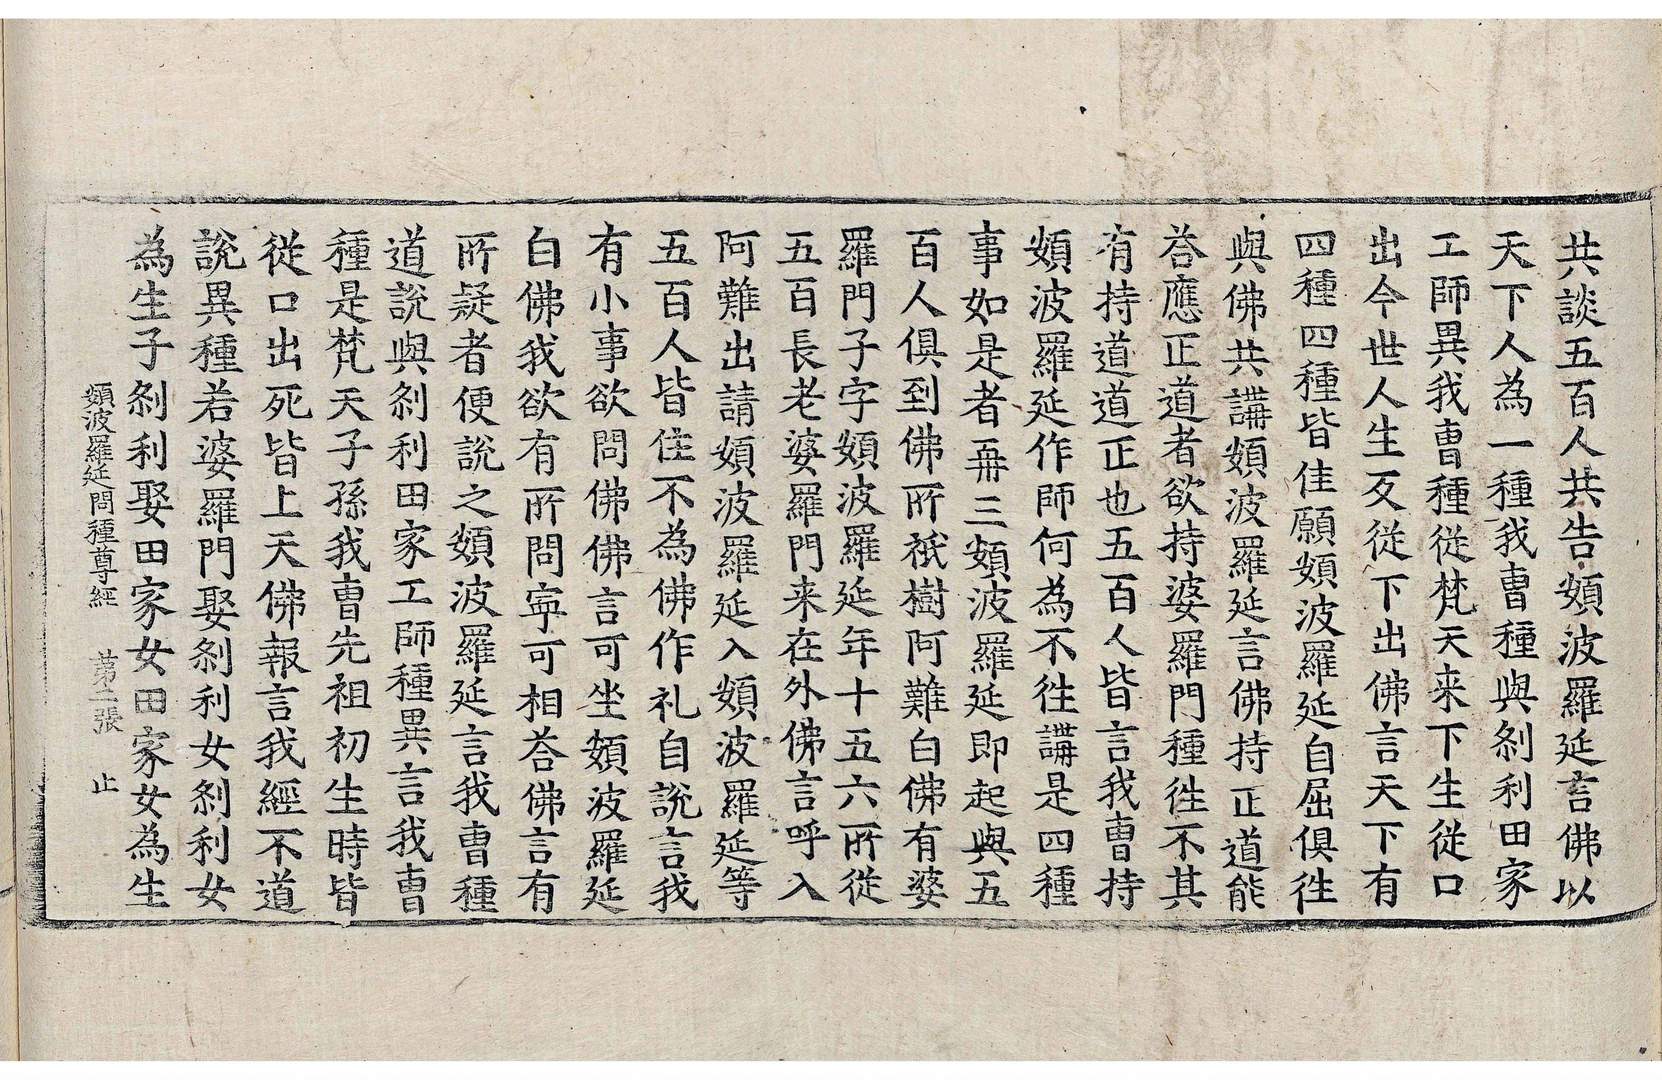 共談五百人共告頞波羅延言佛以
天下人為一種我曺種與刹利田家
工師異我曺種從梵天来下生從口
出今世人生反從下出佛言天下有
四種四種皆佳願頞波羅延自屈俱徃
與佛共講頞波羅延言佛持正道能
荅應正道者欲持婆羅門種徃不其
有持道道正也五百人皆言我曺持
頞波羅延作師何為不徃講是四種
事如是者再三頞波羅延即起與五
百人俱到佛所祇樹阿難白佛有婆
羅門子字頞波羅延年十五六所從
五百長老婆羅門来在外佛言呼入
阿難出請頞波羅延入頞波羅延等
五百人皆住不為佛作礼自說言我
有小事欲問佛佛言可坐頞波羅延
白佛我欲有所問寜可相荅佛言有
所疑者便說之頞波羅延言我曺種
道說與刹利田家工師種異言我曺
種是梵天子孫我曺先祖初生時皆
從口出死皆上天佛報言我經不道
說異種若婆羅門娶刹利女刹利女
為生子刹利娶田家女田家女為生
頞波羅延問種尊經 第二張 止